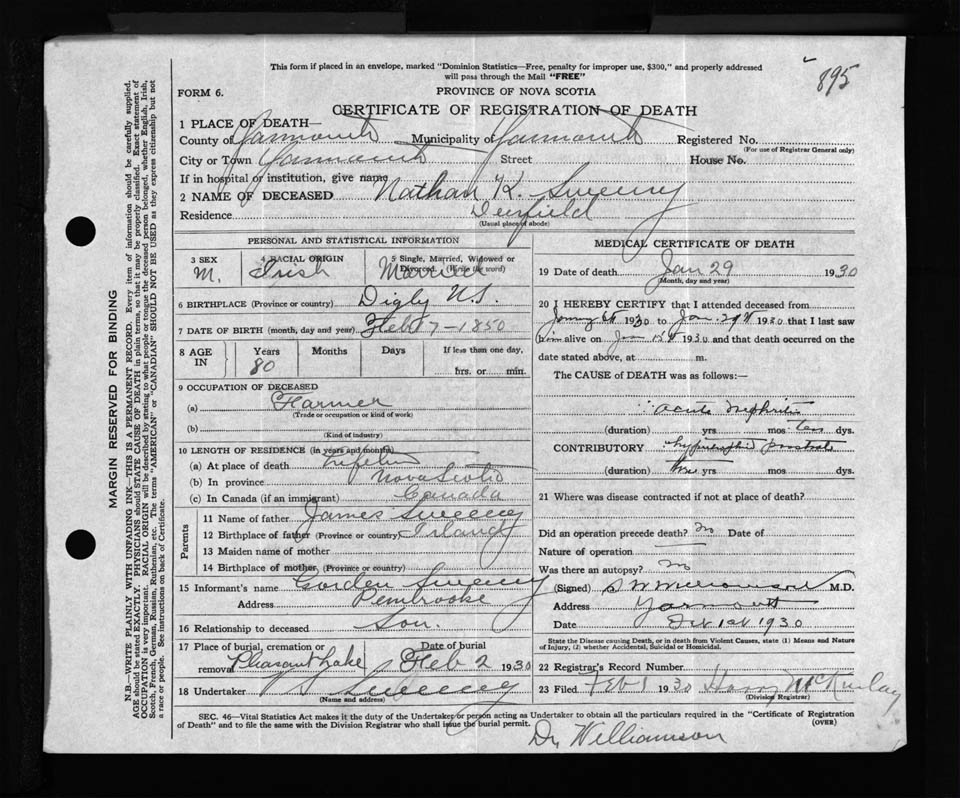 This form if placed in an envelope, marked "Dominion Statistics—Free, penalty for improper use, $300," and properly addressed
will pass through the Mail "FREE"
895
FORM 6.
PROVINCE OF NOVA SCOTIA
CERTIFICATE OF REGISTRATION OF DEATH
1 PLACE OF DEATH—
County of Yarmouth Municipality of Yarmouth Registered No.
(For use of Registrar General only)
City or Town Yarmouth Street House No.
If in hospital or institution, give name
2 NAME OF DECEASED Nathan K. Sweeny
Residence Deerfield
(Usual place of abode)
PERSONAL AND STATISTICAL INFORMATION
3 SEX 4 RACIAL ORIGIN 5 Single, Married, Widowed or Divorced (Write the word)
M. Irish Married
6 BIRTHPLACE (Province or country) Digby N.S.
7 DATE OF BIRTH (month, day and year) Feb 17-1850
8 AGE IN Years Months Days If less than one day,
80 hrs. or min.
9 OCCUPATION OF DECEASED
(a) Farmer
(Trade or occupation or kind of work)
(b)
(Kind of industry)
10 LENGTH OF RESIDENCE (in years and months)
(a) At place of death Lifetime
(b) In province Nova Scotia
(c) In Canada (if an immigrant) Canada
Parents
11 Name of father James Sweeney
12 Birthplace of father (Province or country)
13 Maiden name of mother
14 Birthplace of mother (Province or country)
15 Informant's name Gorden Sweeny
Address Pembrooke
16 Relationship to deceased Son.
17 Place of burial, cremation or removal Date of burial
Pleasant Lake Feb 2 1930
18 Undertaker Sweeney
(Name and address)
MEDICAL CERTIFICATE OF DEATH
19 Date of death Jan 29 1930
(Month, day and year)
20 I HEREBY CERTIFY that I attended deceased from
1930 to Jan. 29 1930 that I last saw
him alive on Jan 1930 and that death occurred on the
date stated above, at m.
The CAUSE OF DEATH was as follows:—
acute nephritis
(duration) yrs mos ten dys.
CONTRIBUTORY prostate
(duration) yrs mos dys.
21 Where was disease contracted if not at place of death?
Did an operation precede death? no Date of
Nature of operation
Was there an autopsy? no
(Signed) M.D.
Address Yarmouth
Date 1930
State the Disease causing Death, or in death from Violent Causes, state (1) Means and Nature
of Injury, (2) whether Accidental, Suicidal or Homicidal.
22 Registrar's Record Number
23 Filed Feb 1 1930 Harry McKinlay
(Division Registrar)
SEC. 46—Vital Statistics Act makes it the duty of the Undertaker or person acting as Undertaker to obtain all the particulars required in the "Certificate of Registration
of Death" and to file the same with the Division Registrar who shall issue the burial permit.
(OVER)
Dr Williamson
MARGIN RESERVED FOR BINDING
N.B.—WRITE PLAINLY WITH UNFADING INK—THIS IS A PERMANENT RECORD. Every item of information should be carefully supplied.
AGE should be stated EXACTLY. PHYSICIANS should STATE CAUSE OF DEATH in plain terms, so that it may be properly classified. Exact statement of
OCCUPATION is very important. RACIAL ORIGIN will be described by stating to what people or tongue the deceased person belonged, whether English, Irish,
Scotch, French, German, Russian, Ruthenian, etc. The terms "AMERICAN" or "CANADIAN" SHOULD NOT BE USED as they express citizenship but not
a race or people. See instructions on back of Certificate.